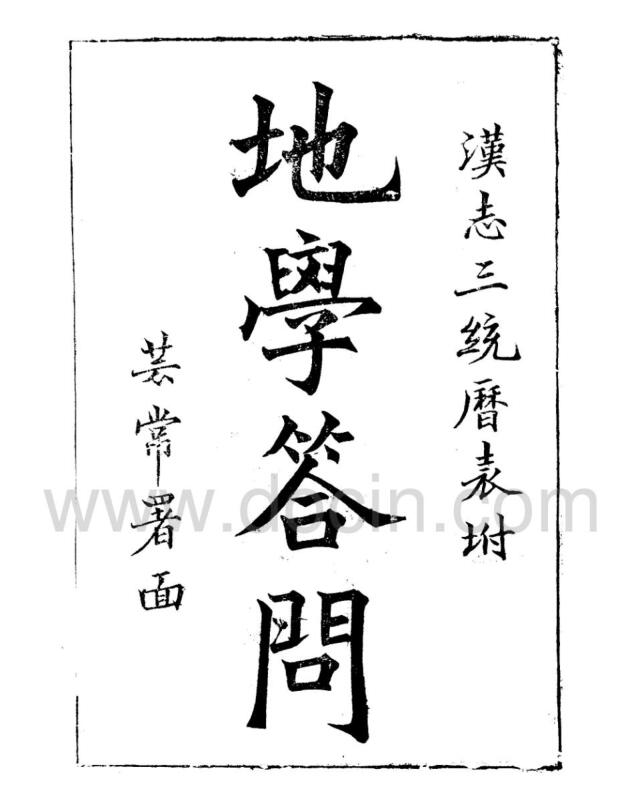 漢志三統曆表坿
地學答問
芸常署面
www.docin.com